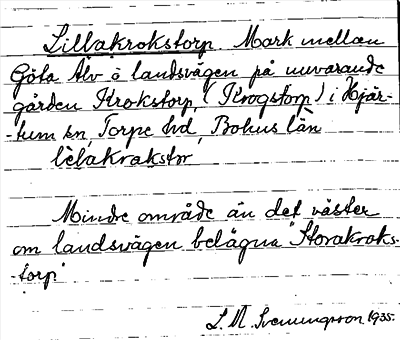 Lillakrokstorp. Mark mellan
Göta Älv o landsvägen på nuvarande
gården Krokstorp, (Krogstorp) i Hjär-
-tum sn, Torpe hd, Bohus län
lelakrakstor
Mindre område än det väster
om landsvägen belägna "Storakroks-
-torp."
L. M. Svenungsson 1935.